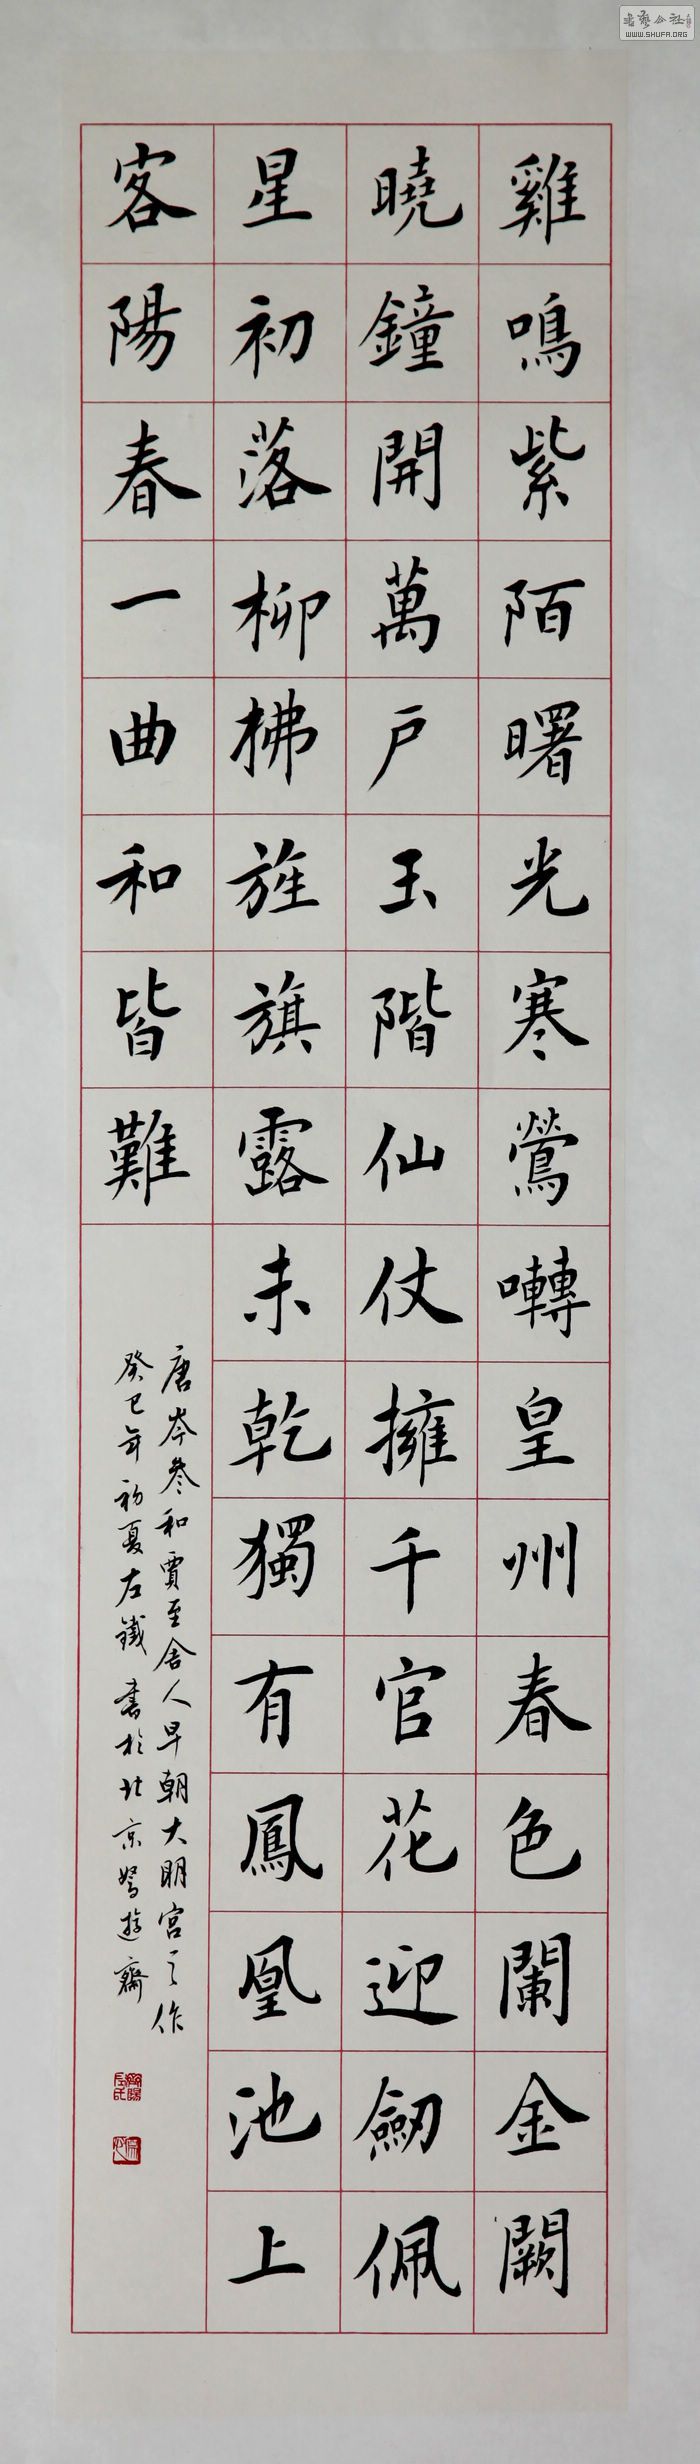 雞鳴紫陌曙光寒鶯囀皇州春色闌金闕
曉鐘開萬戶玉階仙仗擁千官花迎劒佩
星初落柳拂旌旗露未乾獨有鳳凰池上
客陽春一曲和皆難
唐岑參和賈至舍人早朝大明宮之作
癸巳年初夏左鐵書於北京駑遊齋
書藝公社
WWW.SHUFA.ORG